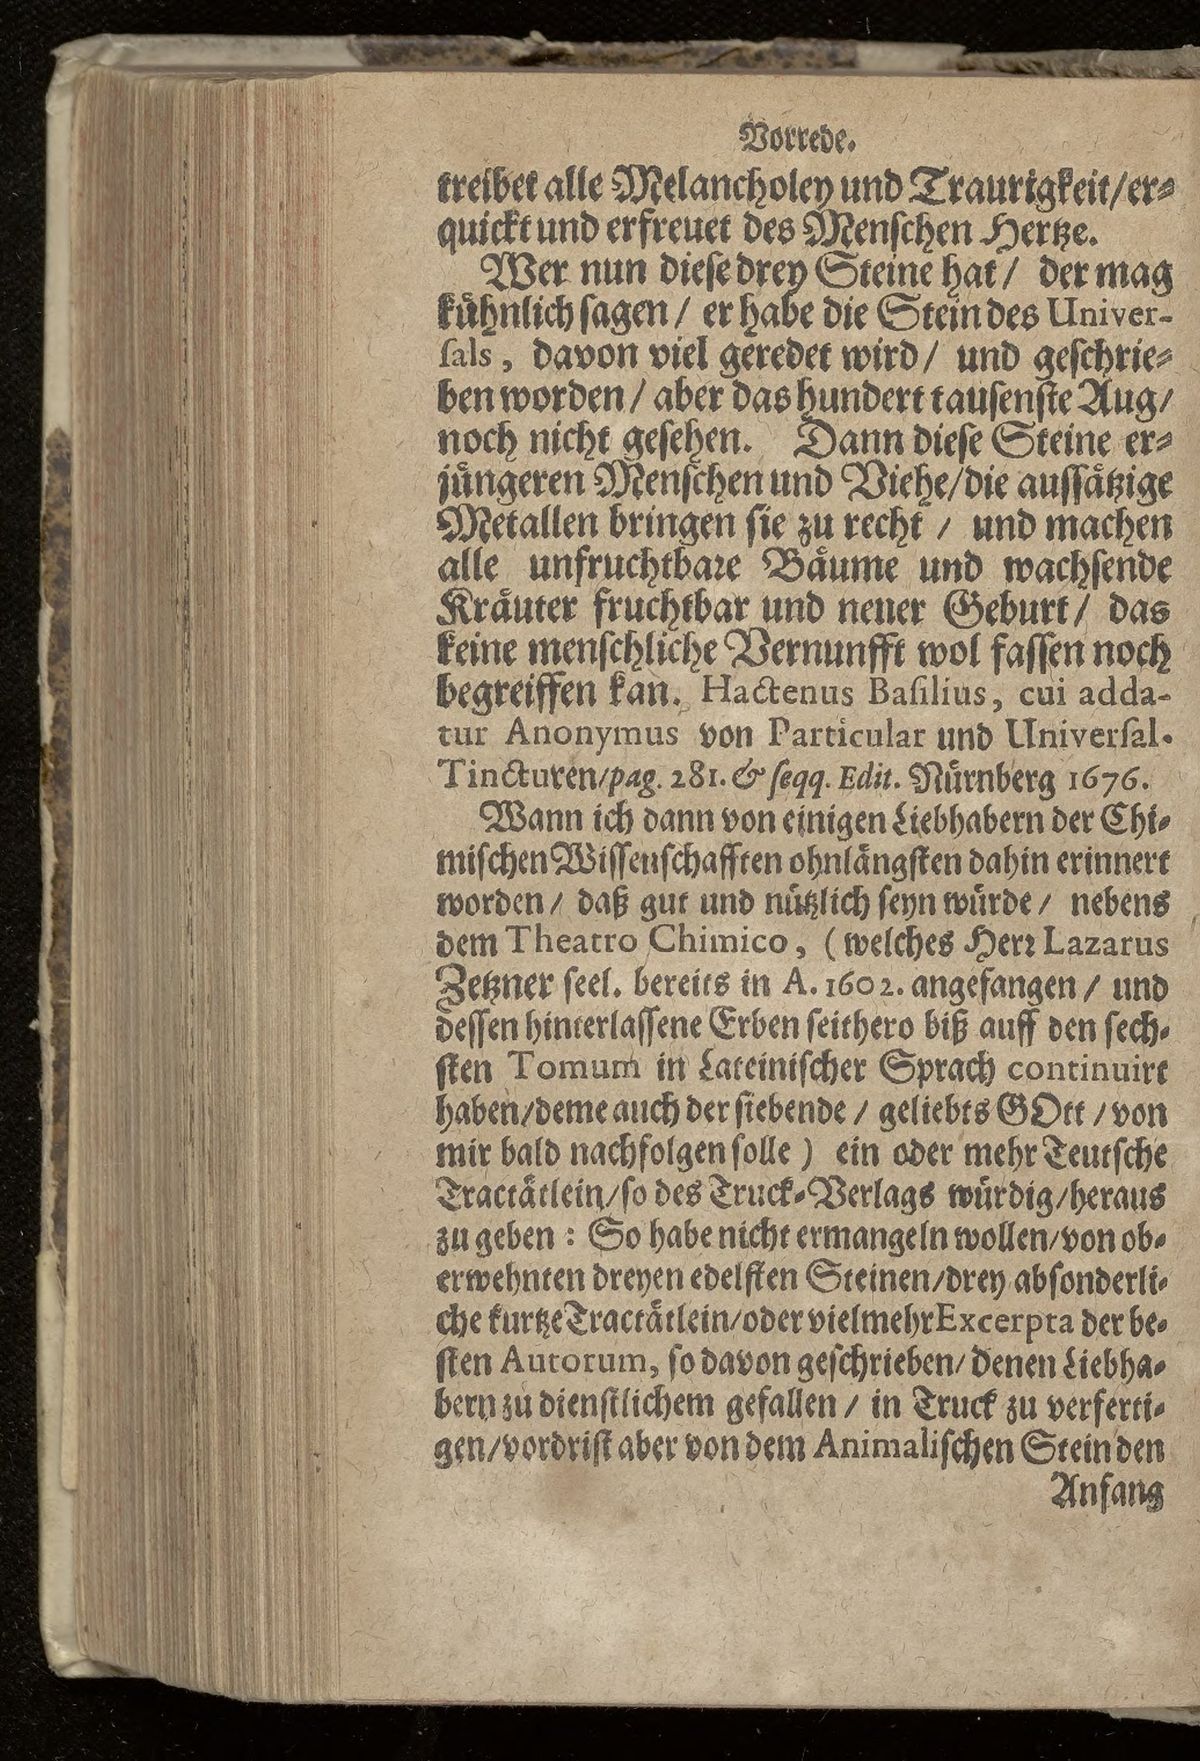 Vorrede.
treibet alle Melancholey und Traurigkeit/er⸗
quickt und erfreuet des Menschen Hertze.
Wer nun diese drey Steine hat/ der mag
kühnlich sagen/ er habe die Stein des Univer-
sals, davon viel geredet wird/ und geschrie⸗
ben worden/ aber das hundert tausenste Aug/
noch nicht gesehen. Dann diese Steine er⸗
jüngeren Menschen und Viehe/die aussätzige
Metallen bringen sie zu recht / und machen
alle unfruchtbare Bäume und wachsende
Kräuter fruchtbar und neuer Geburt/ das
keine menschliche Vernunfft wol fassen noch
begreiffen kan. Hactenus Basilius, cui adda-
tur Anonymus von Particular und Universal-
Tincturen/pag. 281. & seqq. Edit. Nürnberg 1676.
Wann ich dann von einigen Liebhabern der Chi⸗
mischen Wissenschafften ohnlängsten dahin erinnert
worden/ daß gut und nützlich seyn würde/ nebens
dem Theatro Chimico, (welches Herr Lazarus
Zetzner seel. bereits in A. 1602. angefangen/ und
dessen hinterlassene Erben seithero biß auff den sech⸗
sten Tomum in Lateinischer Sprach continuirt
haben/deme auch der siebende/ geliebts GOtt/von
mir bald nachfolgen solle) ein oder mehr Teutsche
Tractätlein/so des Truck⸗Verlags würdig/heraus
zu geben: So habe nicht ermangeln wollen/von ob⸗
erwehnten dreyen edelsten Steinen/drey absonderli⸗
che kurtze Tractätlein/oder vielmehr Excerpta der be⸗
sten Autorum, so davon geschrieben/ denen Liebha⸗
bern zu dienstlichem gefallen/ in Truck zu verferti⸗
gen/vordrist aber von dem Animalischen Stein den
Anfang